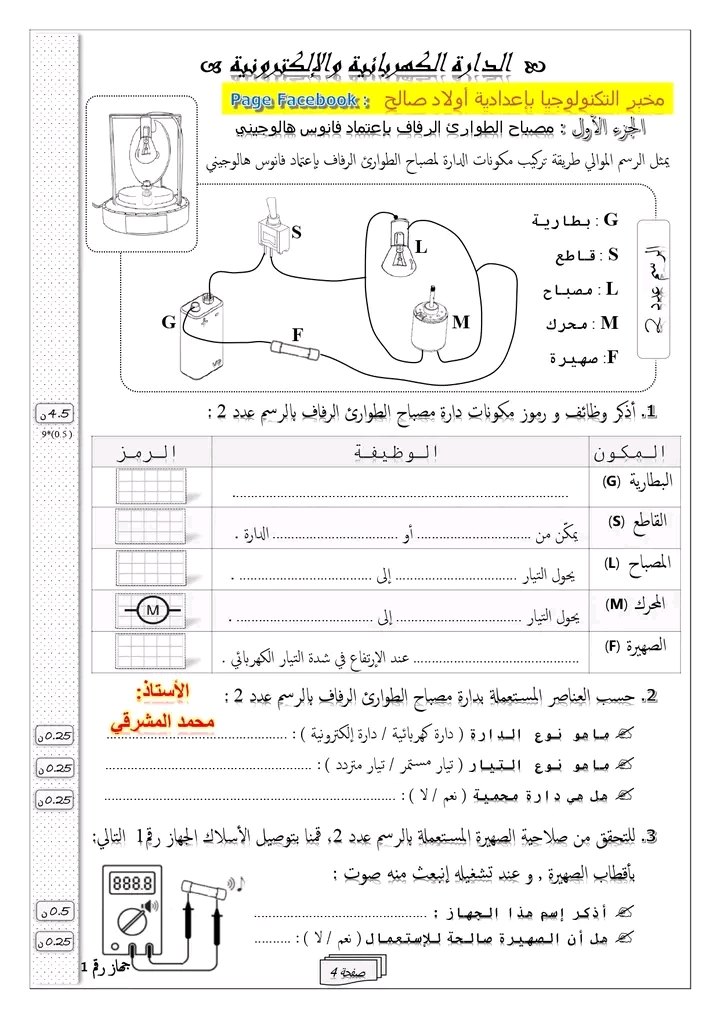 الدارة الكهربائية والإلكترونية
مخبر التكنولوجيا بإعدادية أولاد صالح : Page Facebook
الجزء الأول : مصباح الطوارئ الرفاف بإعتماد فانوس هالوجيني
يمثل الرسم الموالي طريقة تركيب مكونات الدارة لمصباح الطوارئ الرفاف بإعتماد فانوس هالوجيني
الرسم عدد 2
G : بطارية
S : قاطع
L : مصباح
M : محرك
F : صهيرة
S
L
G
F
M
1. أذكر وظائف و رموز مكونات دارة مصباح الطوارئ الرفاف بالرسم عدد 2 :
4.5ن
9*(0.5)
المكون الوظيفة الرمز
البطارية (G) ..........................................
القاطع (S) يمكّن من .................... أو .................... الدارة .
المصباح (L) يحول التيار .................... إلى .................... .
المحرك (M) يحول التيار .................... إلى .................... . M
الصهيرة (F) .................... عند الإرتفاع في شدة التيار الكهربائي .
2. حسب العناصر المستعملة بدارة مصباح الطوارئ الرفاف بالرسم عدد 2 :
الأستاذ:
محمد المشرقي
ماهو نوع الدارة ( دارة كهربائية / دارة إلكترونية ) : ....................
0.25ن
ماهو نوع التيار ( تيار مستمر / تيار متردد ) : ....................
0.25ن
هل هي دارة محمية ( نعم / لا ) : ....................
0.25ن
3. للتحقق من صلاحية الصهيرة المستعملة بالرسم عدد 2، قمنا بتوصيل الأسلاك الجهاز رقم1 التالي:
بأقطاب الصهيرة , و عند تشغيله إنبعث منه صوت :
أذكر إسم هذا الجهاز : ....................
0.5ن
هل أن الصهيرة صالحة للإستعمال ( نعم / لا ) : ..........
0.25ن
888.8
جهاز رقم 1
صفحة 4